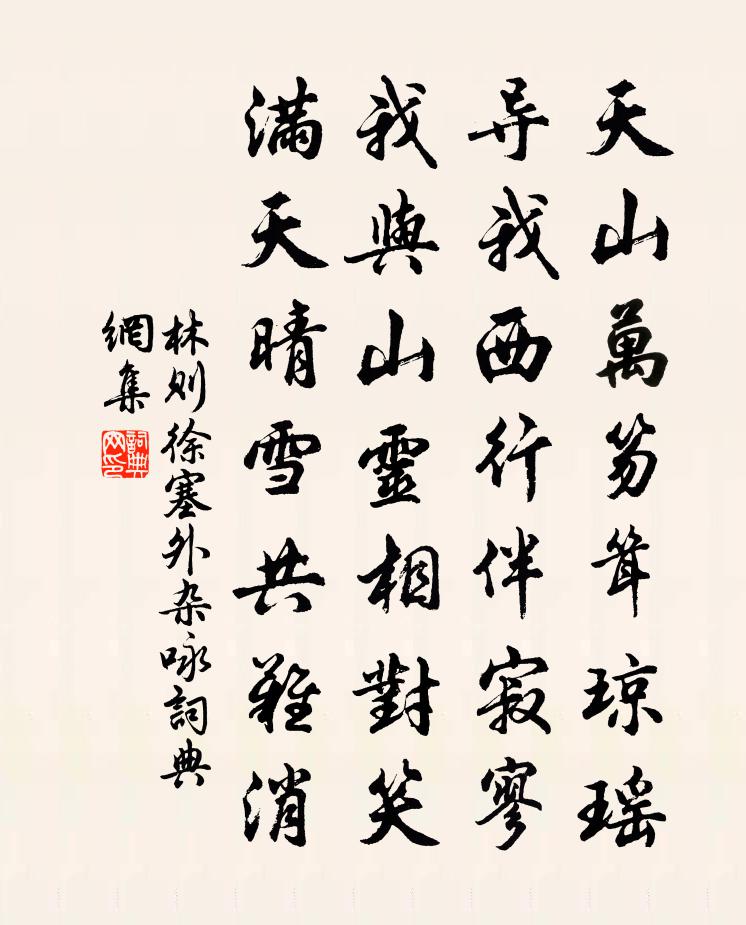 天山萬笏聳瓊瑤
导我西行伴寂寥
我與山靈相對笑
滿天晴雪共難消
林则徐塞外杂咏詞典
網集
詞典
网印